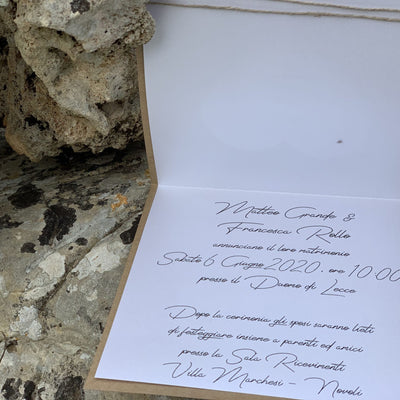 Matteo Grande &
Francesca Rollo
annunciano il loro matrimonio
Sabato 6 Giugno 2020, ore 10:00
presso il Duomo di Lecce
Dopo la cerimonia gli sposi saranno lieti
di festeggiare insieme a parenti ed amici
presso la Sala Ricevimenti
Villa Marchesi - Novoli